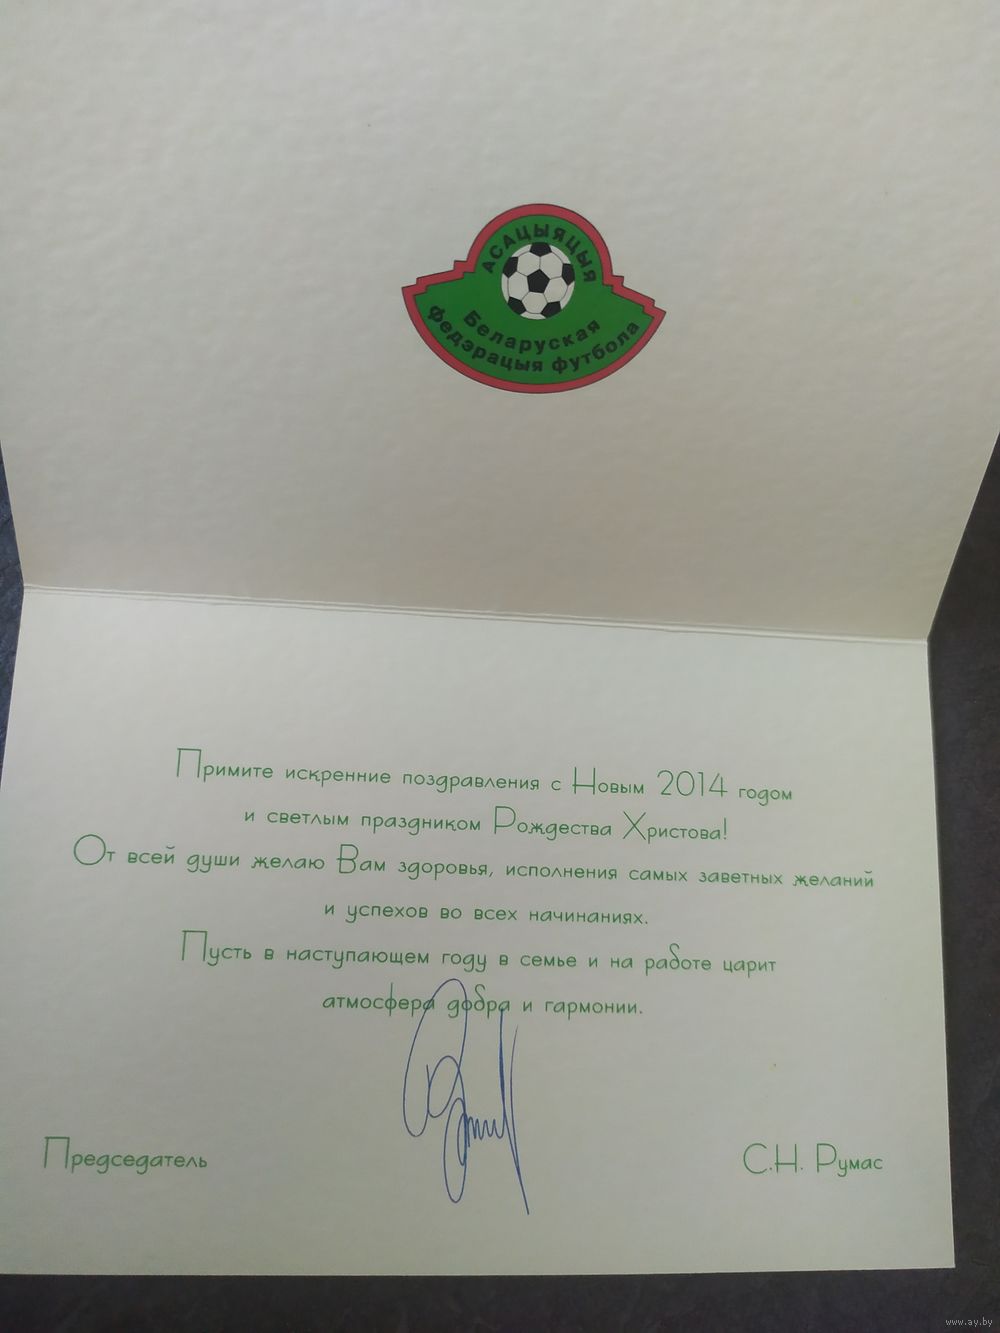 АСАЦЫЯЦЫЯ
Беларуская
федэрацыя футбола
Примите искренние поздравления с Новым 2014 годом
и светлым праздником Рождества Христова!
От всей души желаю Вам здоровья, исполнения самых заветных желаний
и успехов во всех начинаниях.
Пусть в наступающем году в семье и на работе царит
атмосфера добра и гармонии.
Председатель
С.Н. Румас
www.ay.by